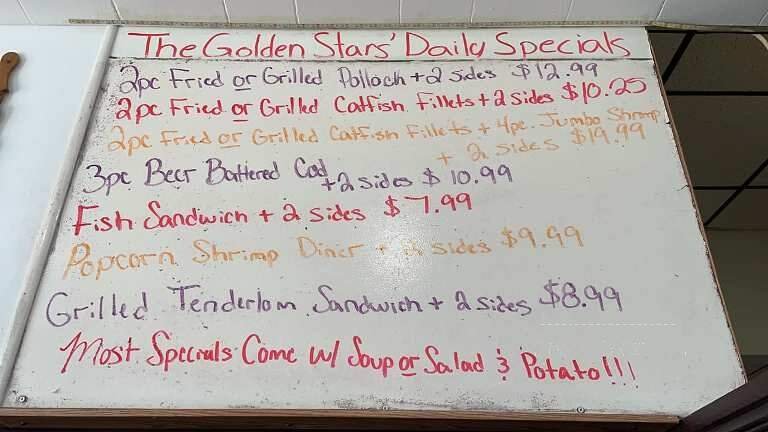 The Golden Stars' Daily Specials
2pc Fried or Grilled Pollock + 2 sides $12.99
2pc Fried or Grilled Catfish Fillets + 2 sides $10.25
2pc Fried or Grilled Catfish Fillets + 4pc. Jumbo Shrimp
+ 2 sides $19.99
3pc Beer Battered Cod
+ 2 sides $10.99
Fish Sandwich + 2 sides $7.99
Popcorn Shrimp Diner + 2 sides $9.99
Grilled Tenderloin Sandwich + 2 sides $8.99
Most Specials Come w/ Soup or Salad & Potato!!!